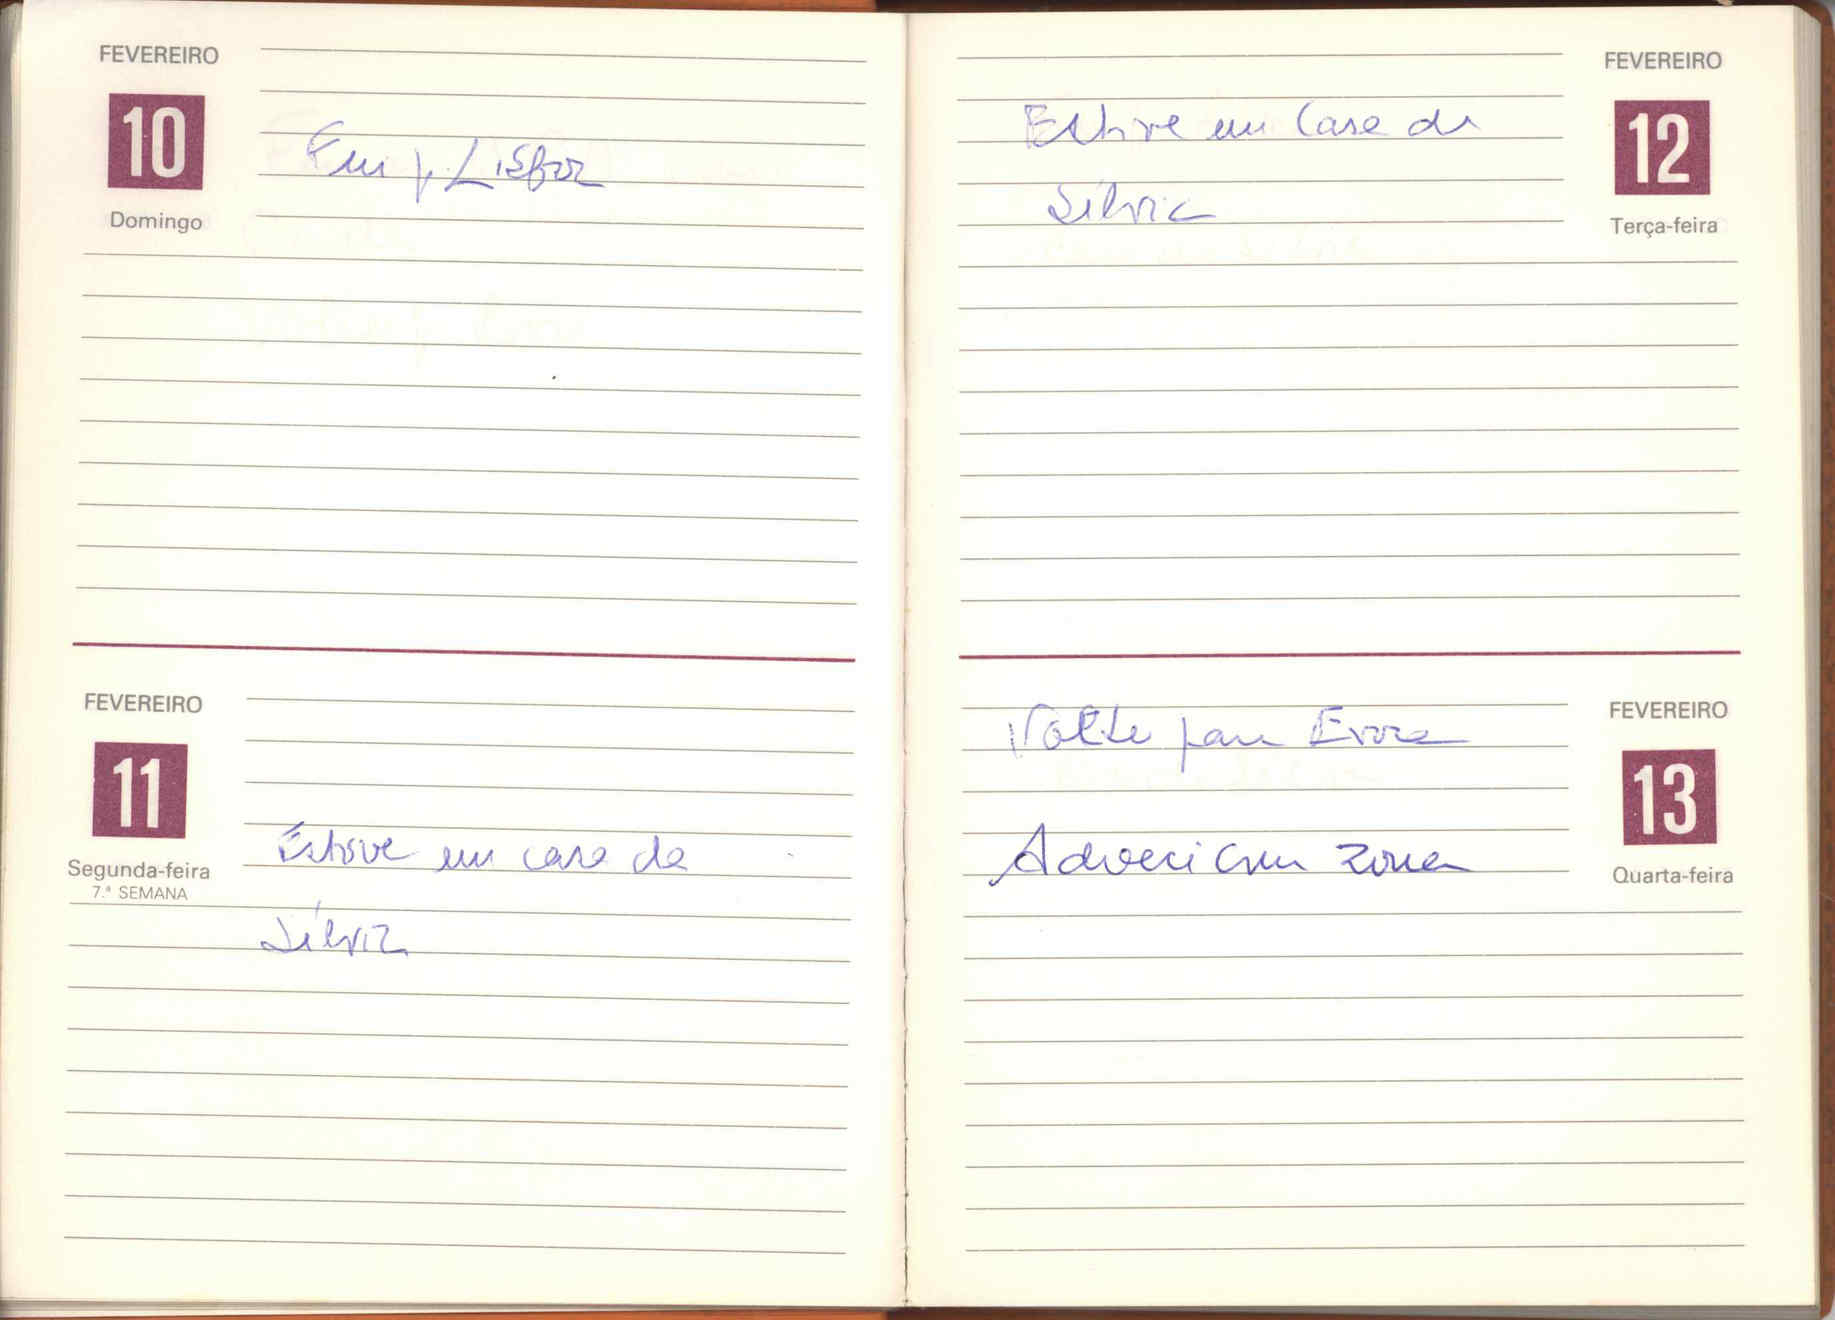 FEVEREIRO
10
Domingo
Fui p. Lisboa
FEVEREIRO
11
Segunda-feira
7.ª SEMANA
Estive em casa da
Sílvia
FEVEREIRO
12
Terça-feira
Estive em Casa da
Sílvia
FEVEREIRO
13
Quarta-feira
Voltei para Evora
Adoeci com zona